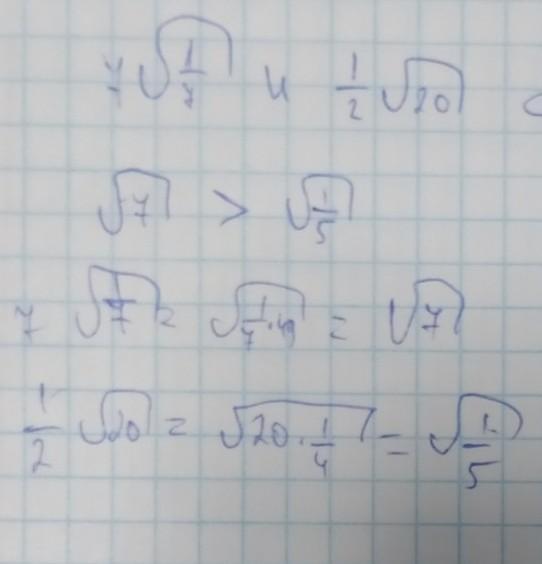 7√(1/7) и 1/2 √20 с
√7 > √(1/5)
7 √(1/7) = √(1/7 · 49) = √7
1/2 √20 = √(20 · 1/4) = √(1/5)